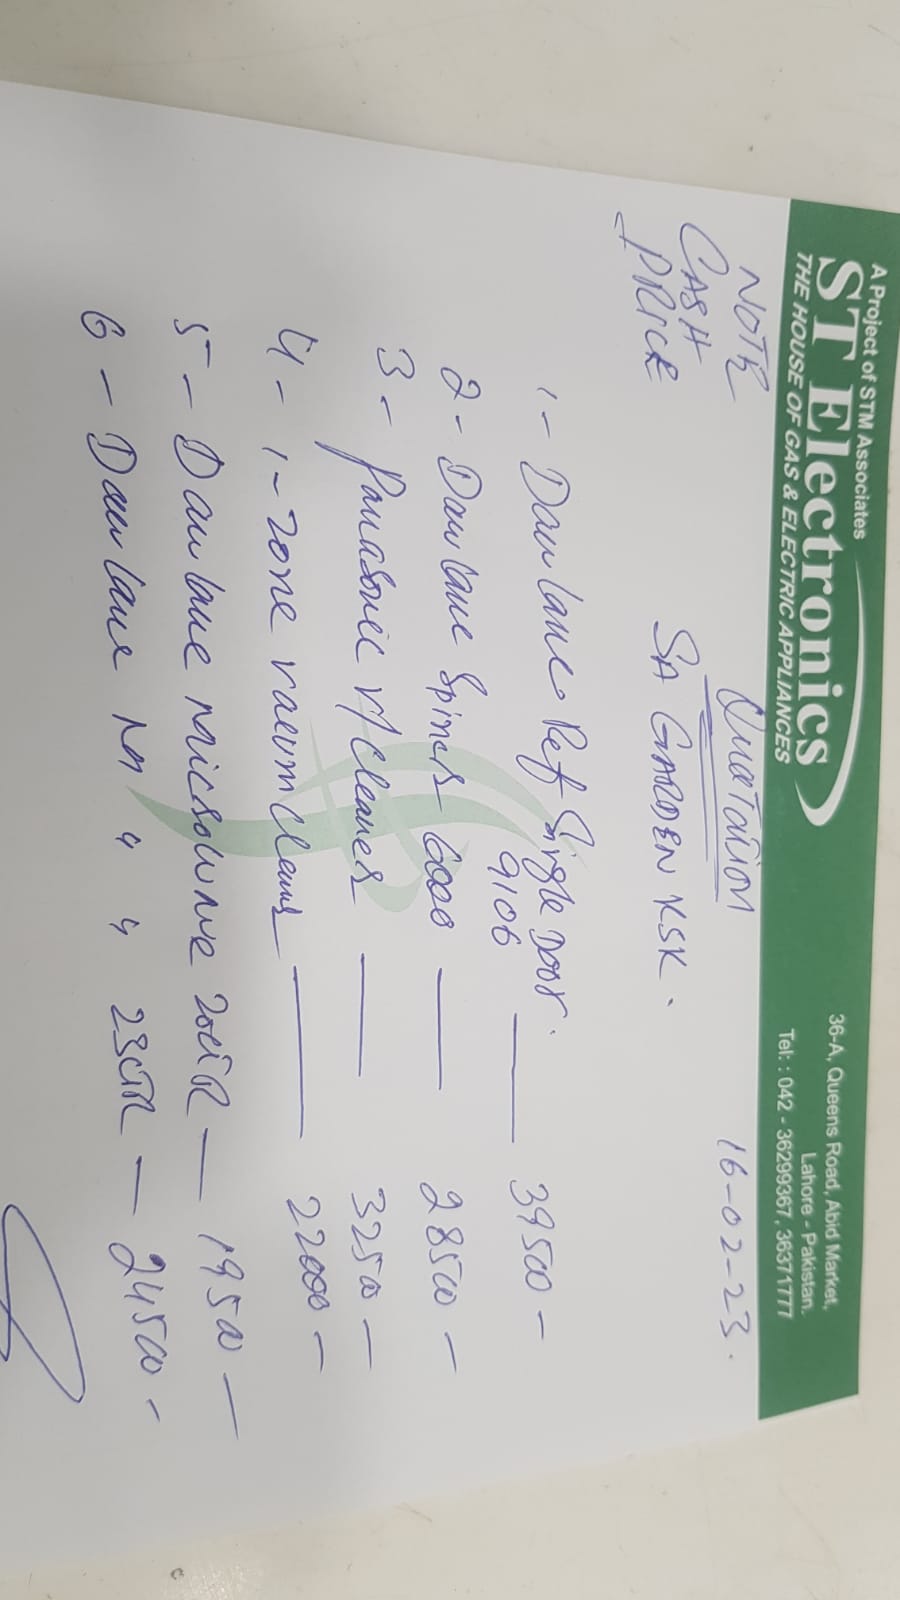 A Project of STM Associates
ST Electronics
THE HOUSE OF GAS & ELECTRIC APPLIANCES
36-A, Queens Road, Abid Market,
Lahore - Pakistan.
Tel: : 042 - 36299367, 36371777
NOTE
CASH
PRICE
Quotation
16-02-23.
SA GARDEN KSK.
1 - Dawlance Ref Single Door. — 39500 -
9106
2 - Dawlance Spiner 6000 — 28500 -
3 - Panasonic V/Cleaner — 32500 -
4 - 1-zone vacum cleaner — 22000 -
5 - Dawlance Micsowave 20LTR — 19500 -
6 - Dawlance M " " 23LTR — 24500 -